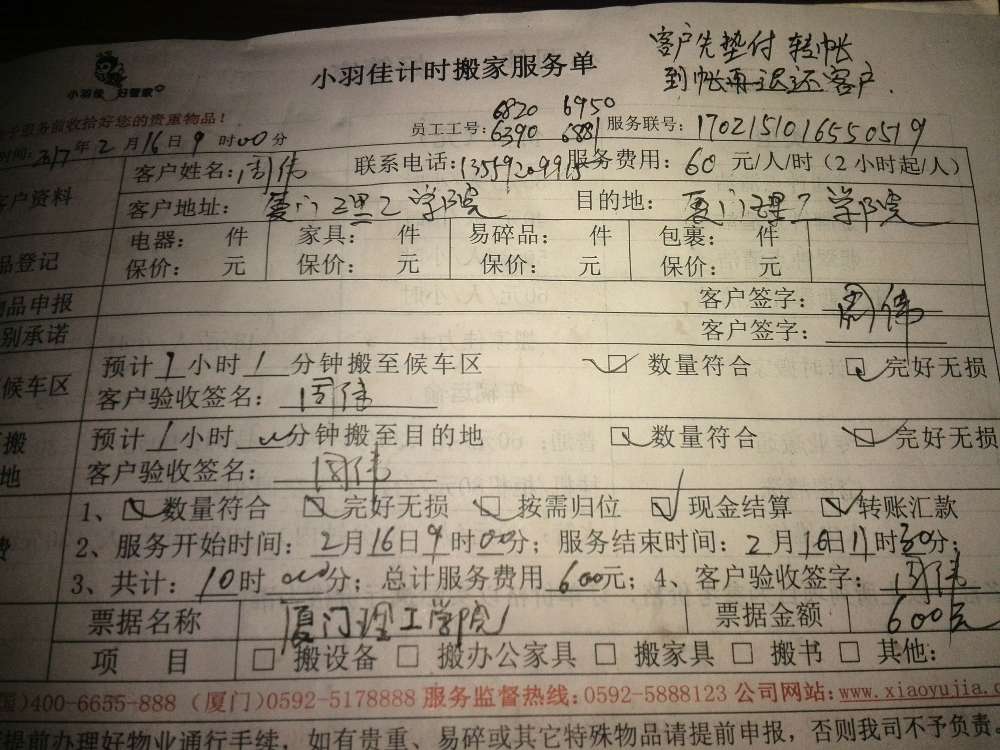 客户先垫付 转帐
到帐再退还客户.
小羽佳 好管家
小羽佳计时搬家服务单
6820 6950
服务前收拾好您的贵重物品！
员工工号：6390 6881 服务联号：17021510165505 19
时间：2017年2月16日9时00分
客户资料
客户姓名：周伟 联系电话： 服务费用：60元/人/时（2小时起/人）
客户地址：厦门理工学院 目的地：厦门理工学院
品登记
电器： 件 家具： 件 易碎品： 件 包裹： 件
保价： 元 保价： 元 保价： 元 保价： 元
物品申报 客户签字：周伟
别承诺 客户签字：
候车区
预计1小时1分钟搬至候车区 数量符合 完好无损
客户验收签名：周伟
搬
地
预计1小时 分钟搬至目的地 数量符合 完好无损
客户验收签名：周伟
费
1、数量符合 完好无损 按需归位 现金结算 转账汇款
2、服务开始时间：2月16日9时00分；服务结束时间：2月16日11时30分；
3、共计：10时00分；总计服务费用600元；4、客户验收签字：周伟
票据名称 厦门理工学院 票据金额 600元
项 目 □搬设备 □搬办公家具 □搬家具 □搬书 □其他：
国)400-6655-888 (厦门)0592-5178888 服务监督热线:0592-5888123 公司网站:www.xiaoyujia.c
提前办理好物业通行手续，如有贵重、易碎或其它特殊物品请提前申报，否则我司不予负责